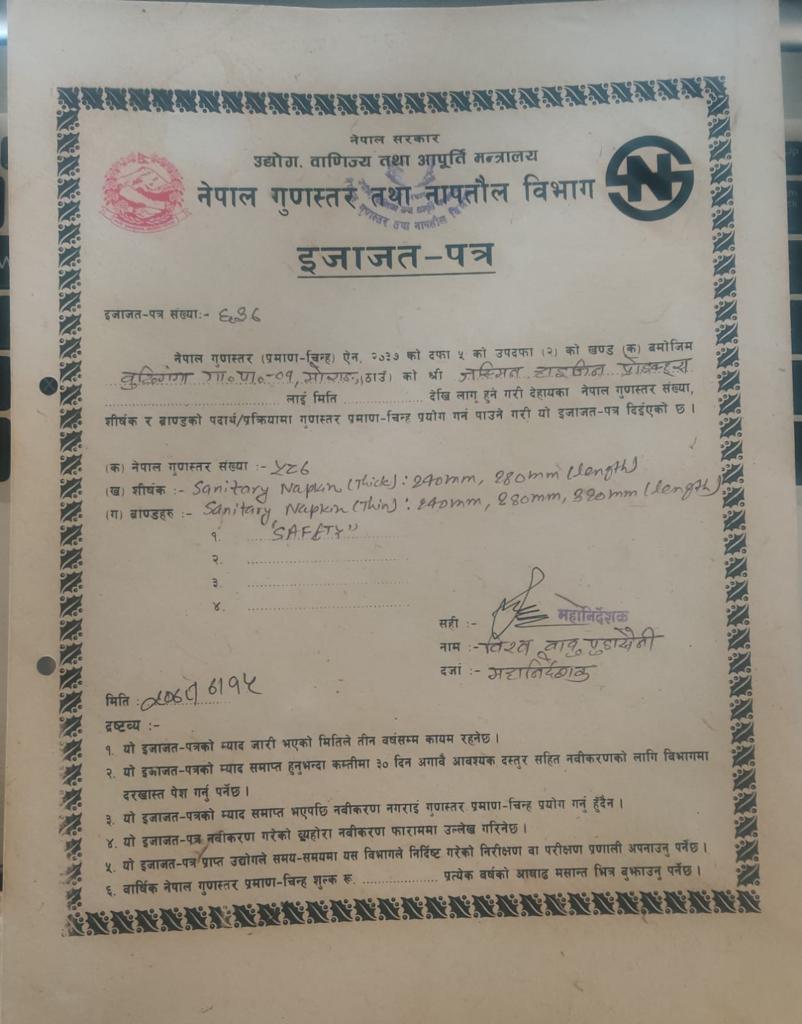 नेपाल सरकार
उद्योग, वाणिज्य तथा आपूर्ति मन्त्रालय
नेपाल गुणस्तर तथा नापतौल विभाग
NS
गुणस्तर तथा नापतौल
इजाजत-पत्र
इजाजत-पत्र संख्या:-
नेपाल गुणस्तर (प्रमाण-चिन्ह) ऐन, २०३७ को दफा ५ को उपदफा (२) को खण्ड (क) बमोजिम
बुढिगंगा गा०पा०-०१, मोरङ (ठाउँ) को श्री हाइजीन प्रोडक्ट्स
लाई मिति .................... देखि लागू हुने गरी देहायका नेपाल गुणस्तर संख्या,
शीर्षक र ब्राण्डको पदार्थ/प्रक्रियामा गुणस्तर प्रमाण-चिन्ह प्रयोग गर्न पाउने गरी यो इजाजत-पत्र दिईएको छ ।
(क) नेपाल गुणस्तर संख्या :-
(ख) शीर्षक :- Sanitary Napkin (Thick): 240mm, 280mm (length)
(ग) ब्राण्डहरु :- Sanitary Napkin (Thin): 240mm, 280mm, 320mm (length)
१. "SAFETY"
२. ....................
३. ....................
४. ....................
सही :- महानिर्देशक
नाम :- विश्व बाबु पुडासैनी
दर्जा :- महानिर्देशक
मिति :
द्रष्टव्य :-
१. यो इजाजत-पत्रको म्याद जारी भएको मितिले तीन वर्षसम्म कायम रहनेछ ।
२. यो इजाजत-पत्रको म्याद समाप्त हुनुभन्दा कम्तीमा ३० दिन अगावै आवश्यक दस्तुर सहित नवीकरणको लागि विभागमा
दरखास्त पेश गर्नु पर्नेछ ।
३. यो इजाजत-पत्रको म्याद समाप्त भएपछि नवीकरण नगराई गुणस्तर प्रमाण-चिन्ह प्रयोग गर्न हुँदैन ।
४. यो इजाजत-पत्र नवीकरण गरेको व्यहोरा नवीकरण फाराममा उल्लेख गरिनेछ ।
५. यो इजाजत-पत्र प्राप्त उद्योगले समय-समयमा यस विभागले निर्दिष्ट गरेको निरीक्षण वा परीक्षण प्रणाली अपनाउनु पर्नेछ ।
६. वार्षिक नेपाल गुणस्तर प्रमाण-चिन्ह शुल्क रू. .................... प्रत्येक वर्षको आषाढ मसान्त भित्र बुझाउनु पर्नेछ ।